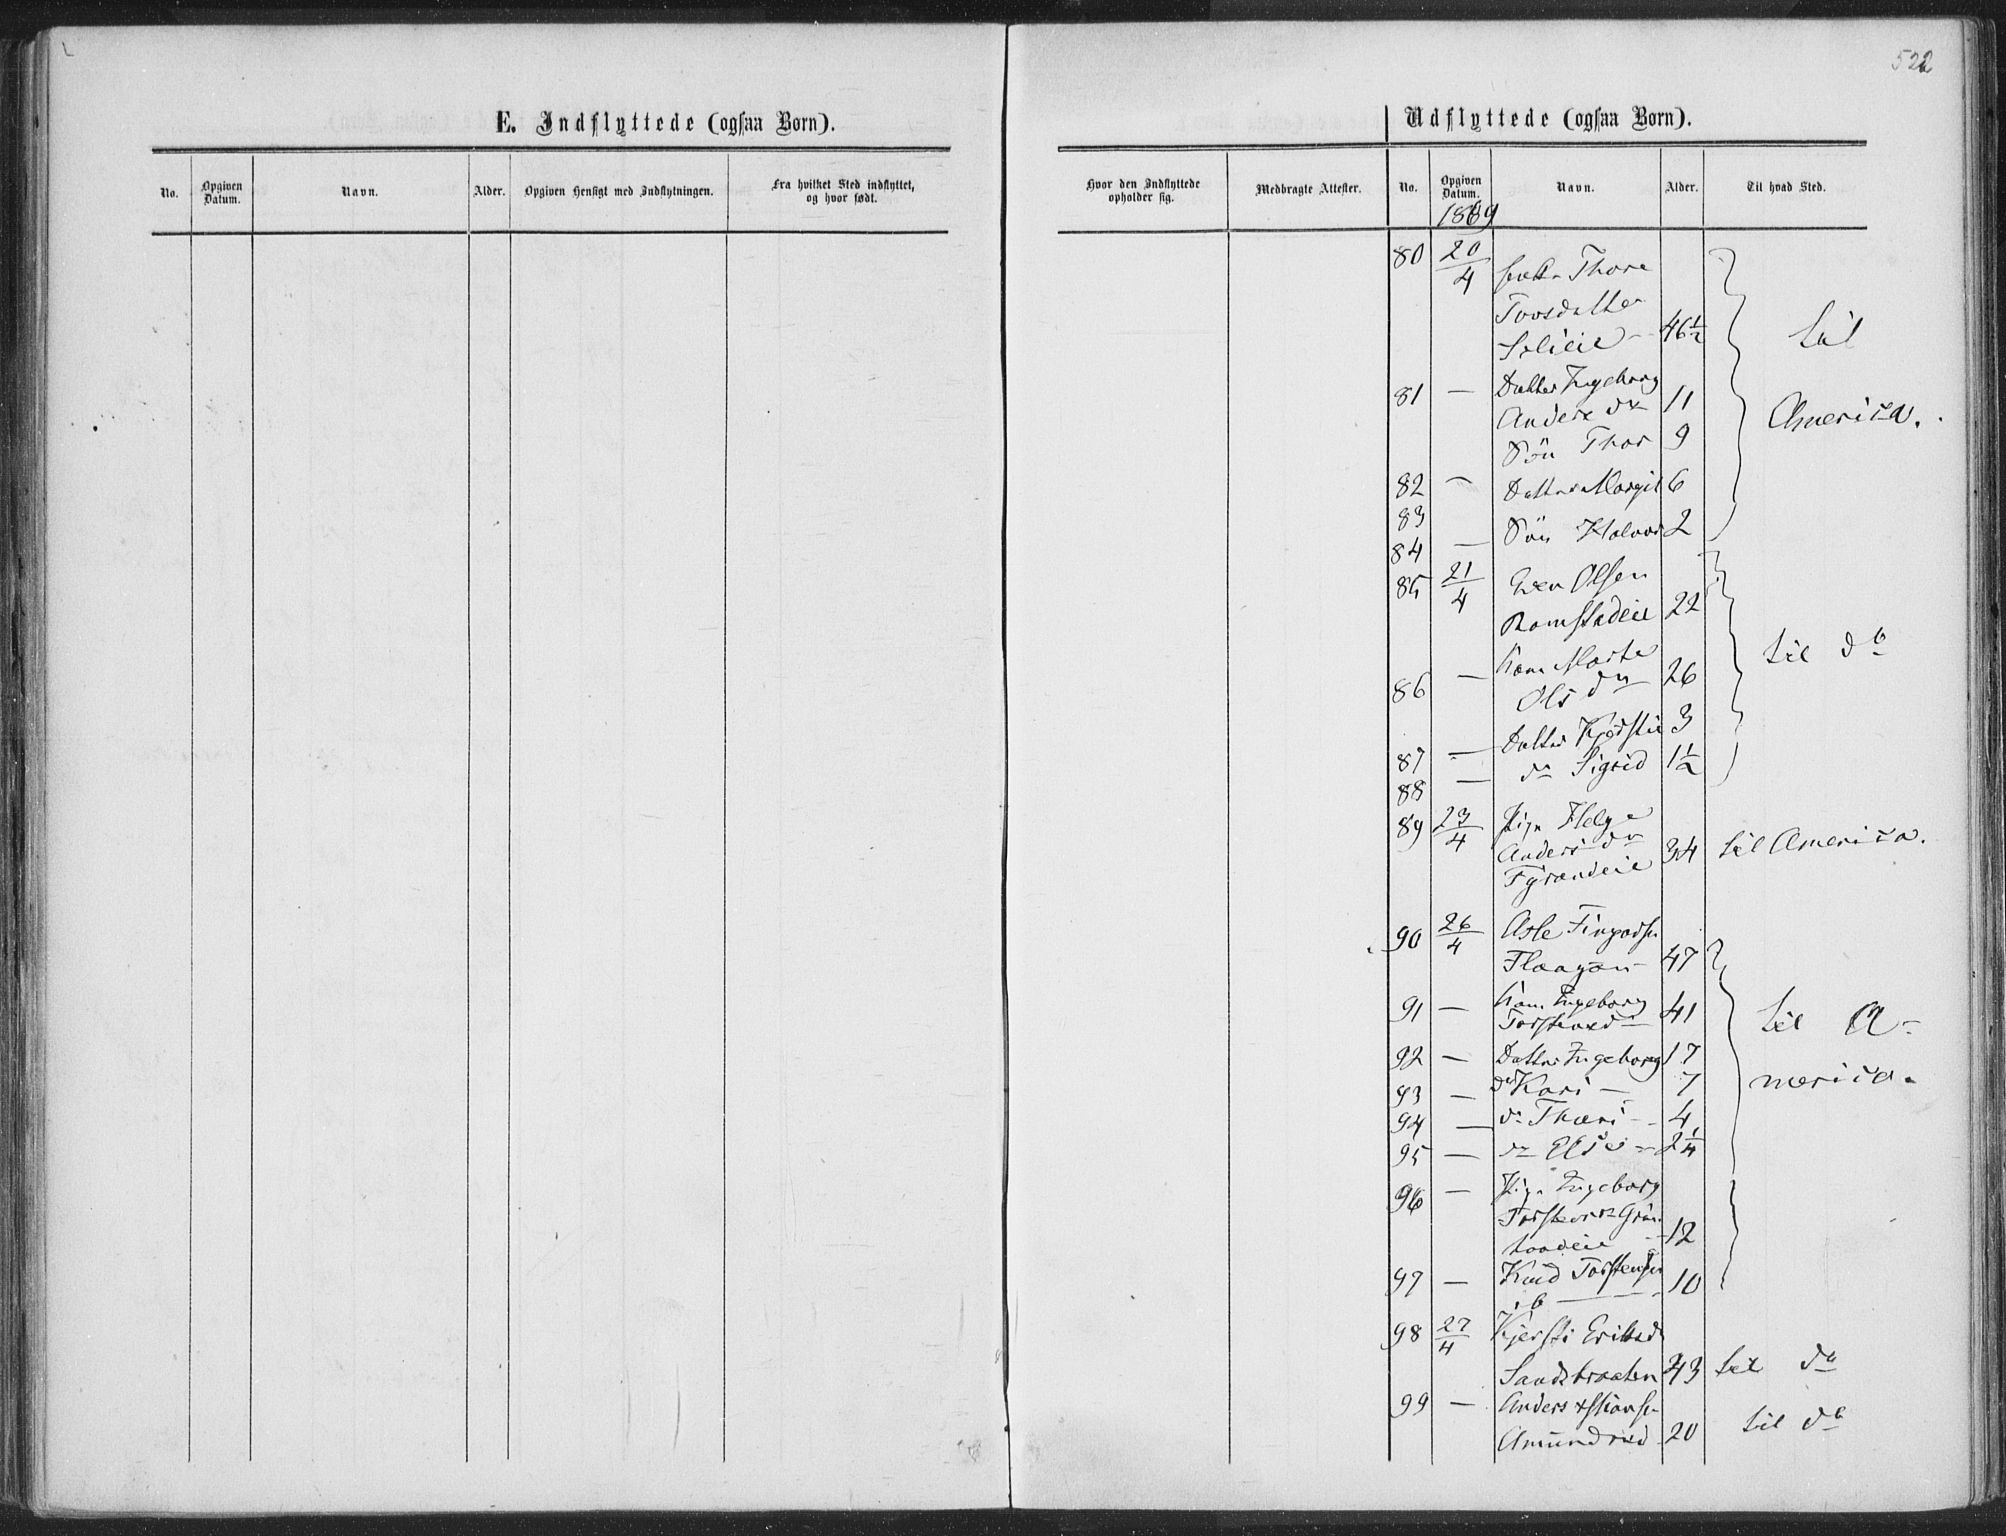 522
E. Indflyttede (ogsaa Børn).
No.
Opgiven Datum.
Navn.
Alder.
Opgiven Hensigt med Indflytningen.
Fra hvilket Sted indflyttet, og hvor født.
Udflyttede (ogsaa Børn).
Hvor den Indflyttede opholder sig.
Medbragte Attester.
No.
Opgiven Datum.
Navn.
Alder.
Til hvad Sted.
1869
80 20/4 Thore
Torsdatter
46½ til
81 — Datter Ingeborg
Anders dr 11 America.
Søn Thor 9
82 — Datter Margit 6
83
84 — Søn Halvor 2
85 21/4 Olsen
Ramstadeie 22
86 — Kone Marte
Ols dr 26 til do
87 — Datter Kjersti 3
88 — do Sigrid 1½
89 23/4 Pige Helge
Anders dr 34 til America.
90 26/4 Asle
47
91 — Kone Ingeborg
Torstensd 41 til A-
92 — Datter Ingeborg 17
93 — do Kari — 7 merica.
94 — do — 4
95 — do — 2¼
96 — Pige Ingeborg
Torstensdr
12
97 — Knud Torstensen
ib — 10
98 27/4 Kjersti Eriksd
Sandsbraaten 43 til do
99 — Anders
Amundrud 20 til do